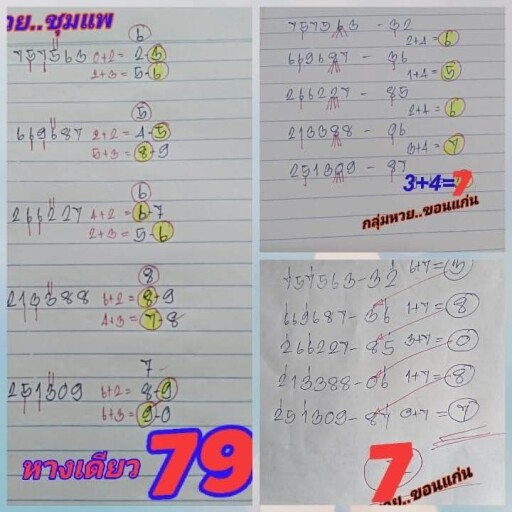 วย..ชุมแพ
6
757563 0+2= 2-3
2+3= 5-6
5
669687 2+2= 4-5
5+3= 8-9
6
266227 4+2= 6-7
2+3= 5-6
8
213388 6+2= 8-9
4+3= 7-8
7
251309 6+2= 8-9
6+3= 9-0
หางเดียว 79
757563 - 32
2+4= 6
669687 - 36
1+4= 5
266227 - 85
2+4= 6
213388 - 06
3+4= 7
251309 - 87
3+4=7
กลุ่มหวย..ขอนแก่น
757563-32 6+7= 3
669687-36 1+7= 8
266227-85 3+7= 0
213388-06 1+7= 8
251309-87 0+7= 7
7
วย..ขอนแก่น